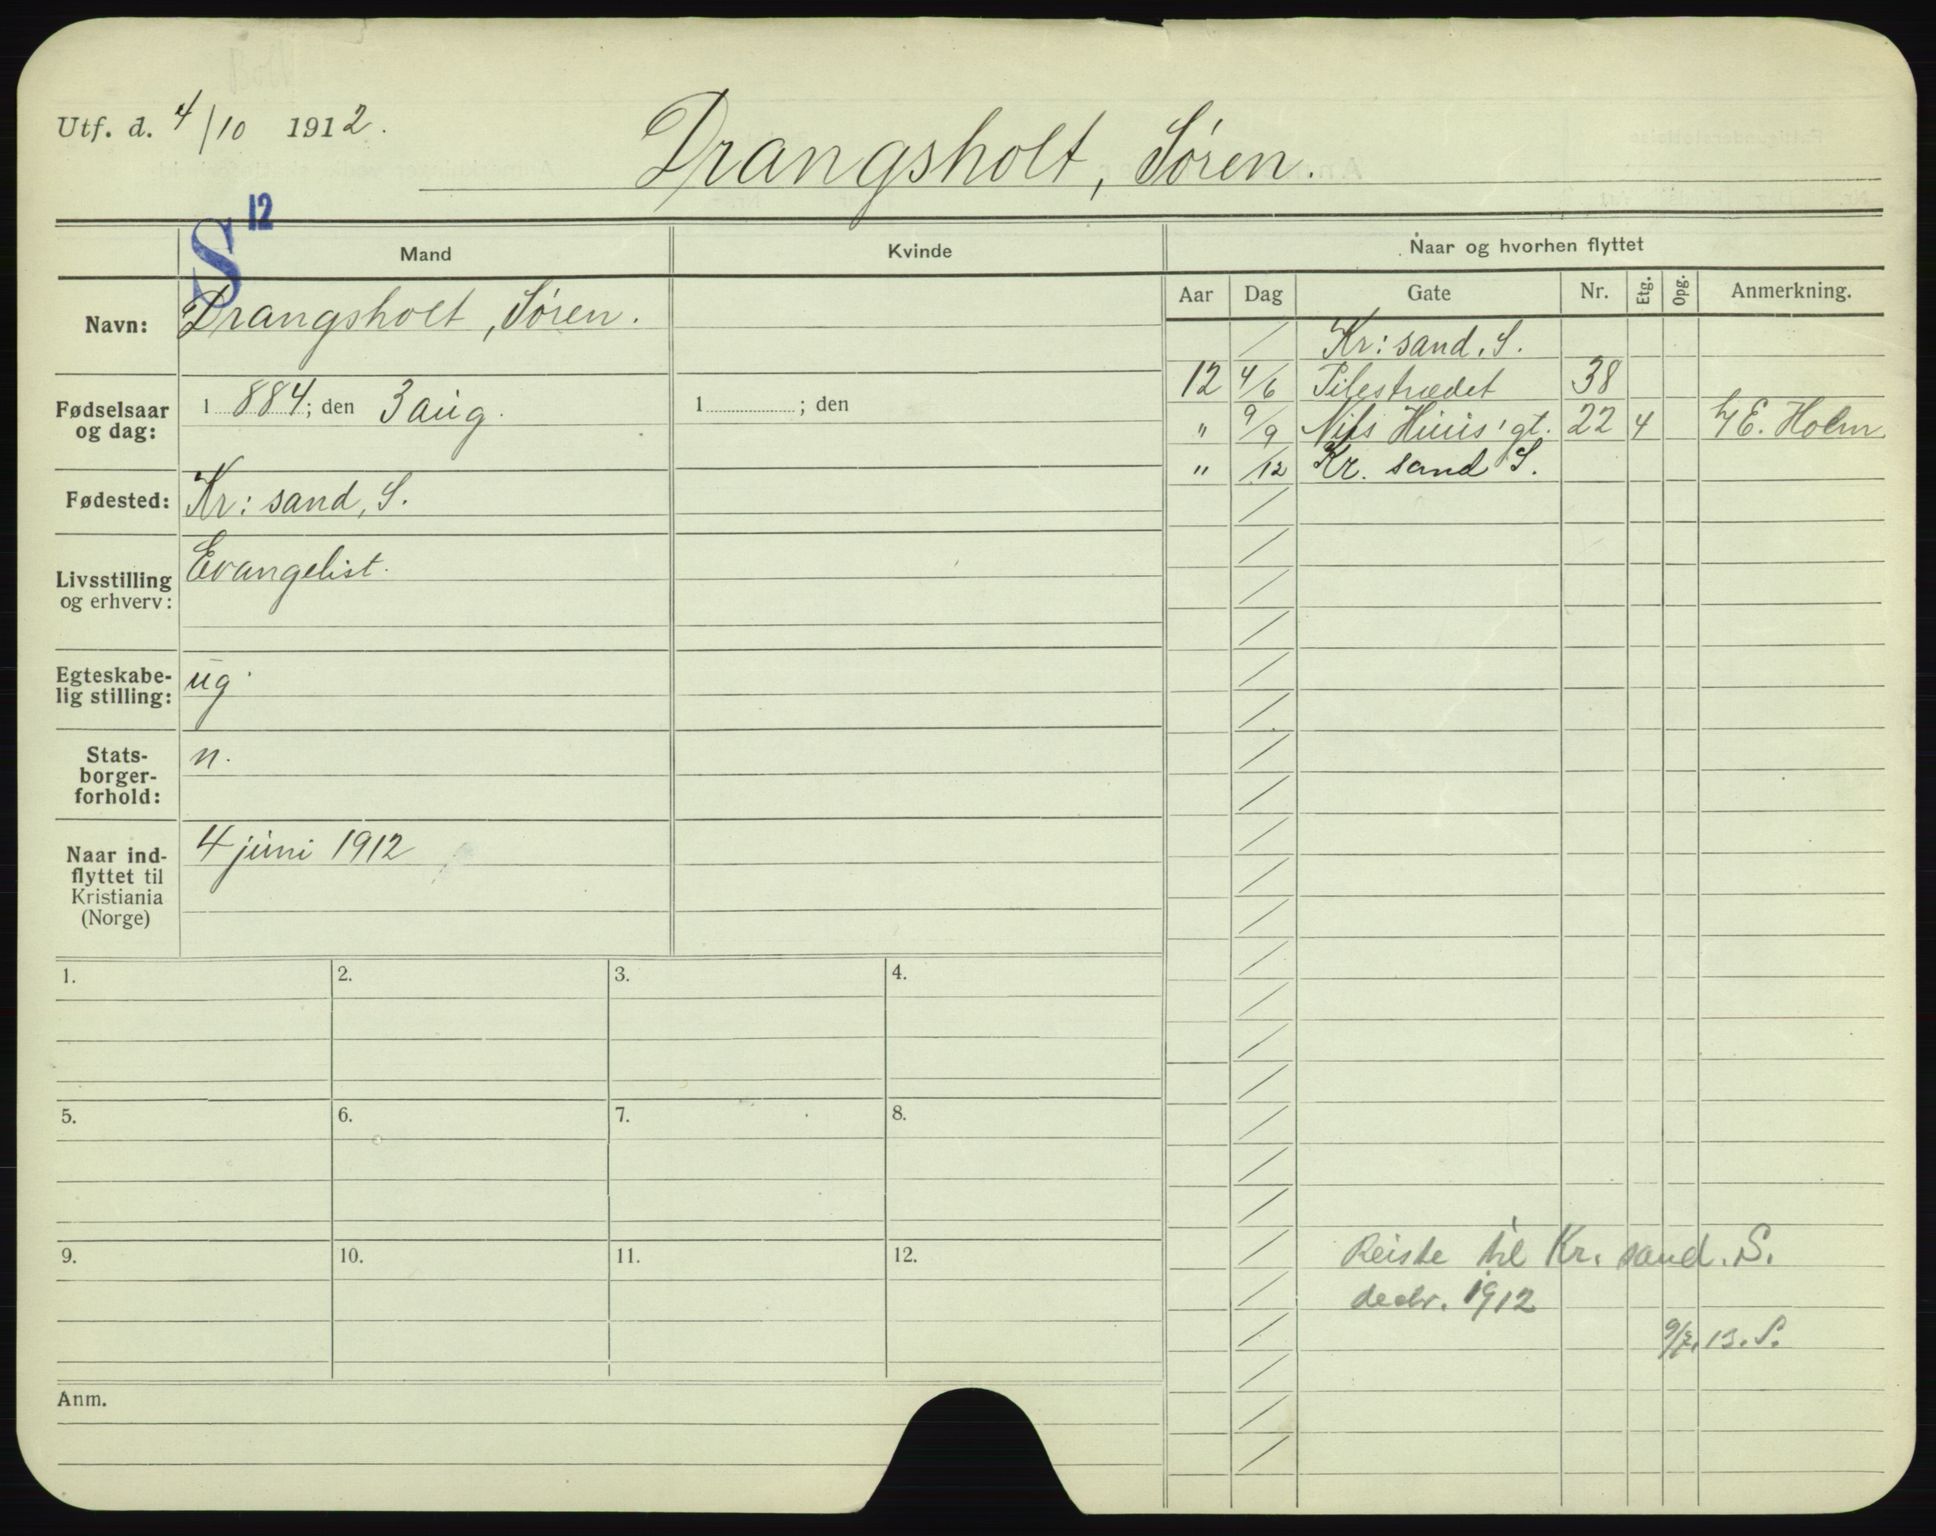 Utf. d. 4/10 1912.
Drangsholt, Søren.
S 12
Mand
Kvinde
Naar og hvorhen flyttet
Aar Dag Gate Nr. Etg. Opg. Anmerkning.
Navn: Drangsholt, Søren.
Fødselsaar og dag: 1884; den 3 aug.
1 ; den
Fødested: Kr: sand, S.
Livsstilling og erhverv: Evangelist.
Egteskabe-
lig stilling: ug
Stats-
borger-
forhold: n.
Naar ind-
flyttet til
Kristiania
(Norge) 4 juni 1912
Kr: sand, S.
12 4/6 Pilestrædet 38
" 9/9 Nils Huus' gt. 22 4 E. Holm
" /12 Kr. sand S.
1. 2. 3. 4.
5. 6. 7. 8.
9. 10. 11. 12.
Anm.
Reiste til Kr. sand. S.
decbr. 1912
13. S.